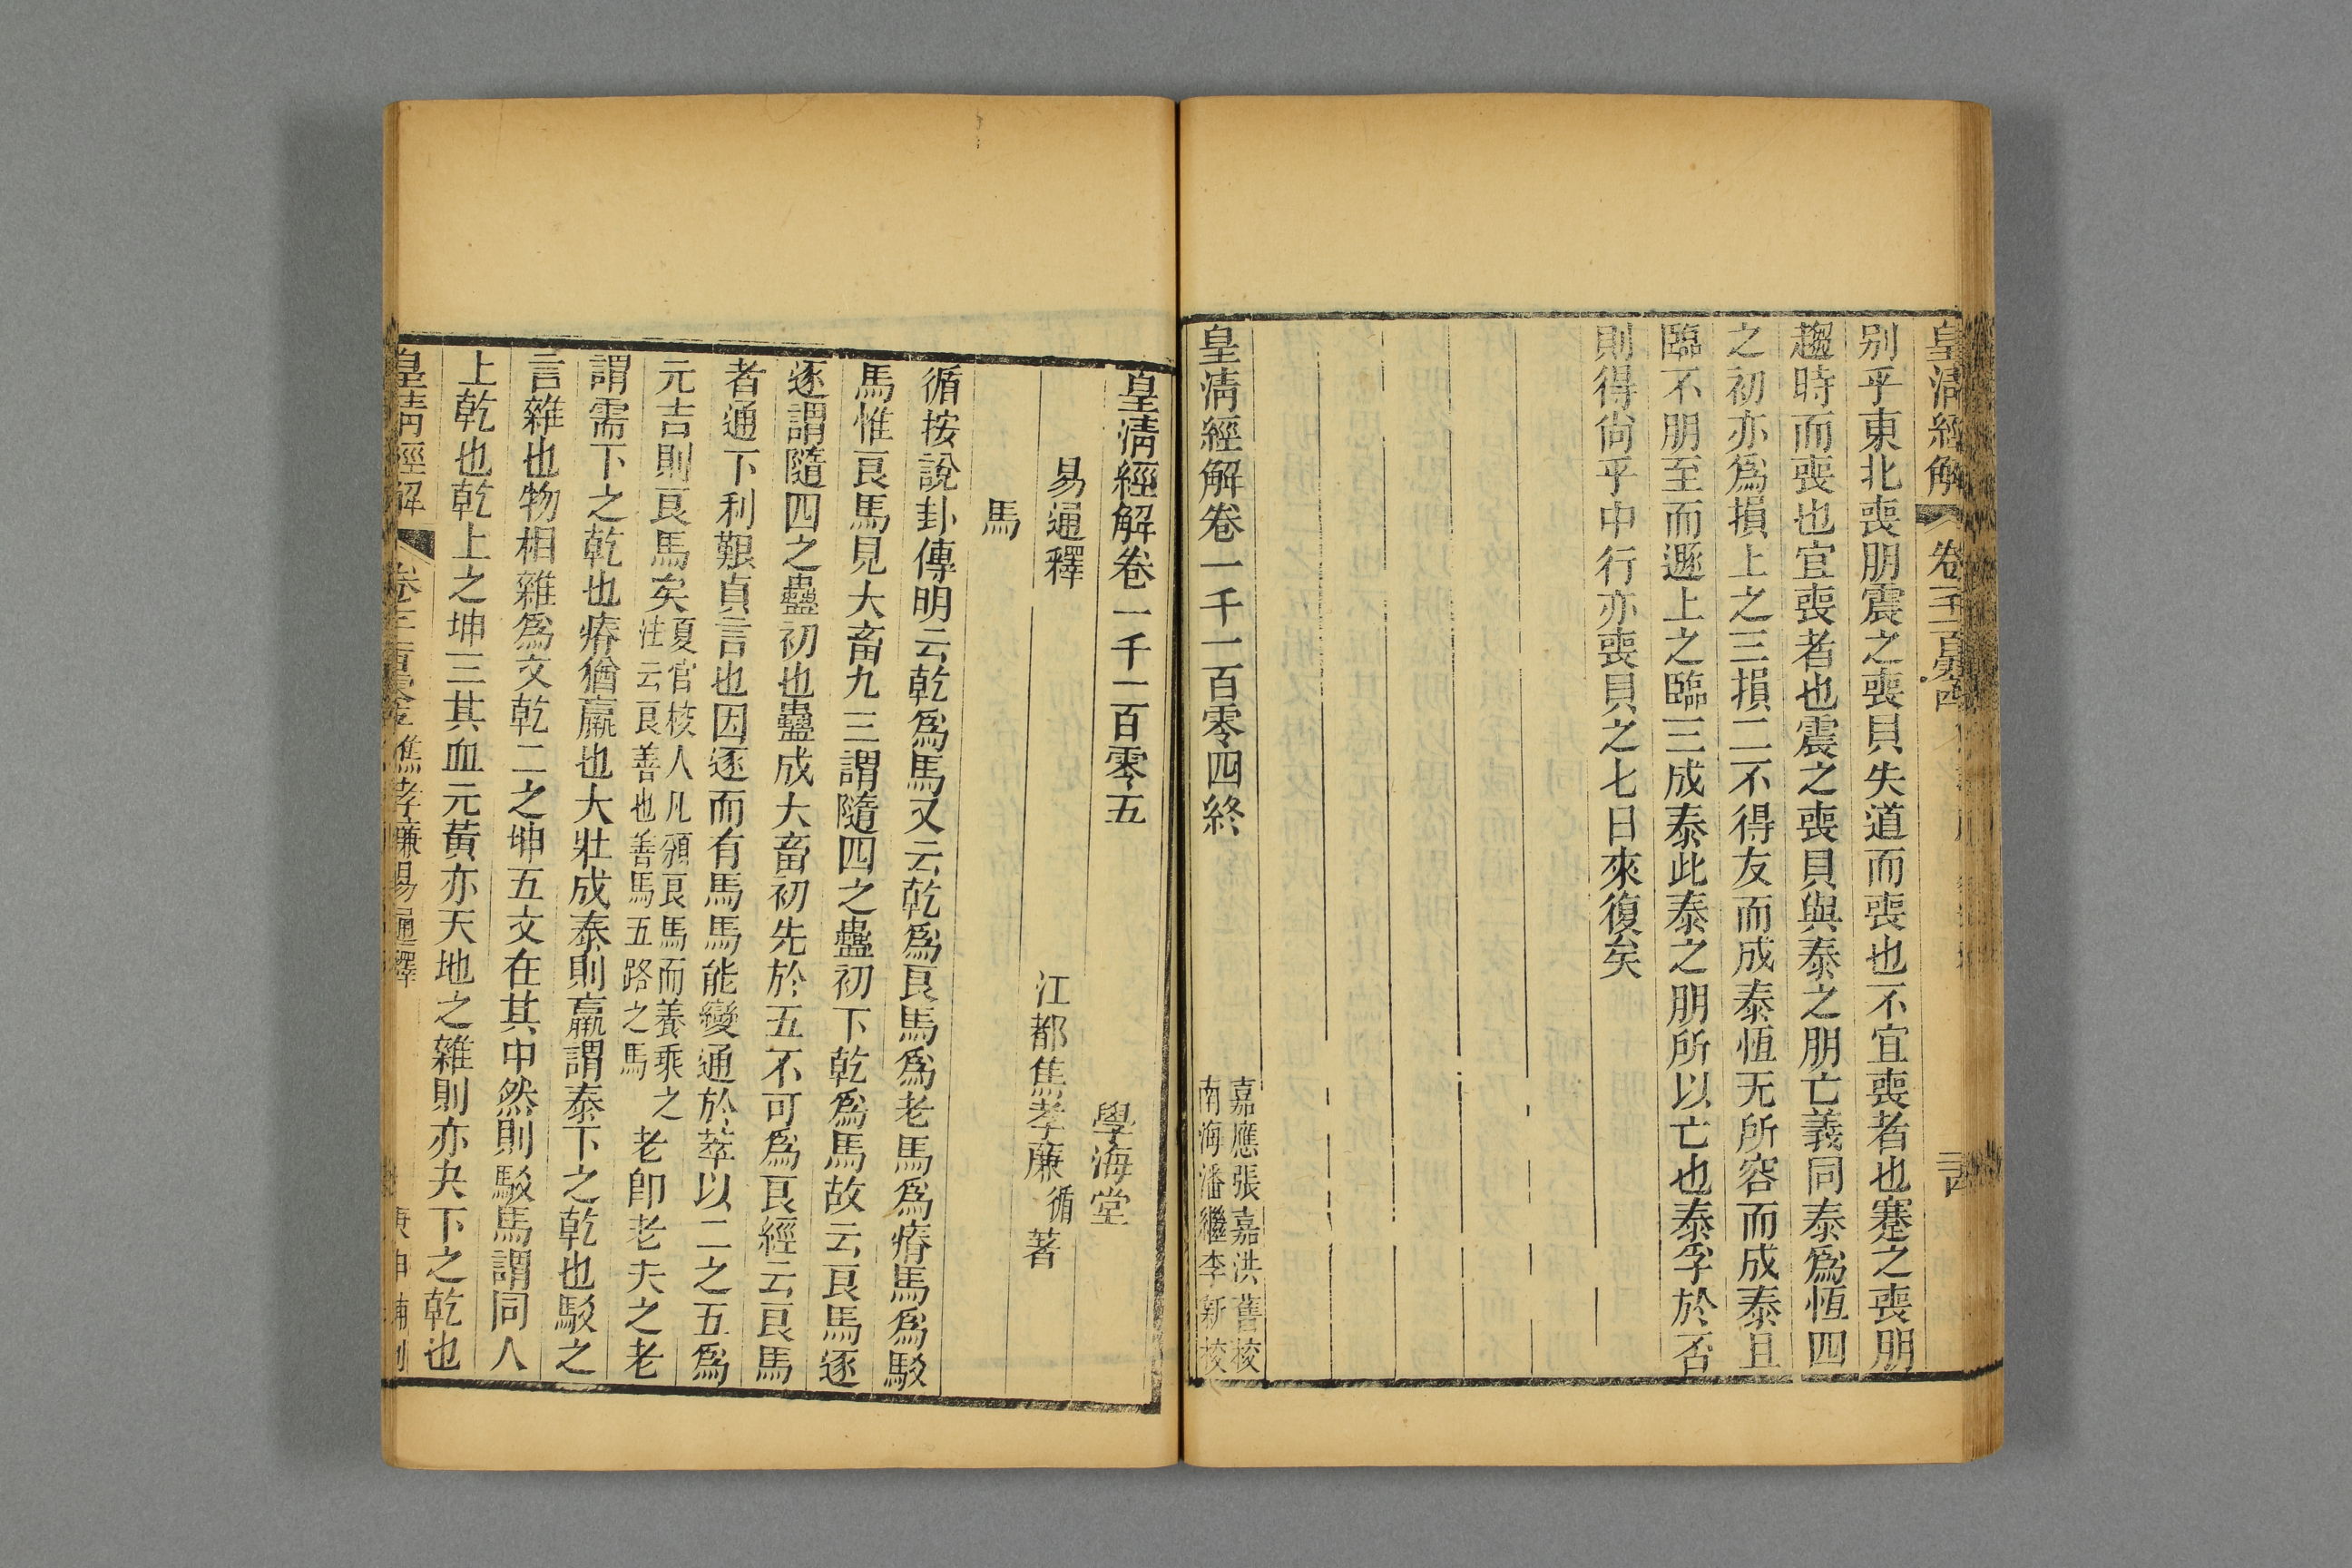 皇清經解 卷千一百零四
别乎東北喪朋震之喪貝失道而喪也不宜喪者也蹇之喪朋
趨時而喪也宜喪者也震之喪貝與泰之朋亡義同泰爲恆四
之初亦爲損上之三損二不得友而成泰恆无所容而成泰且
臨不朋至而遯上之臨三成泰此泰之朋所以亡也泰孚於否
則得尙乎中行亦喪貝之七日來復矣
皇清經解卷一千一百零四終
嘉應張嘉洪舊校
南海潘繼李新校
皇清經解卷一千一百零五
學海堂
易通釋
江都焦孝廉循著
馬
循按說卦傳明云乾爲馬又云乾爲良馬爲老馬爲瘠馬爲駁
馬惟良馬見大畜九三謂隨四之蠱初下乾爲馬故云良馬逐
逐謂隨四之蠱初也蠱成大畜初先於五不可爲良經云良馬
者通下利艱貞言也因逐而有馬馬能變通於萃以二之五爲
元吉則良馬矣夏官校人凡頒良馬而養乘之
注云良善也善馬五路之馬
老卽老夫之老
謂需下之乾也瘠猶羸也大壯成泰則羸謂泰下之乾也駁之
言雜也物相雜爲文乾二之坤五文在其中然則駁馬謂同人
上乾也乾上之坤三其血元黃亦天地之雜則亦夬下之乾也
皇清經解 卷千一百零五 焦孝廉易通釋
庚申補刊